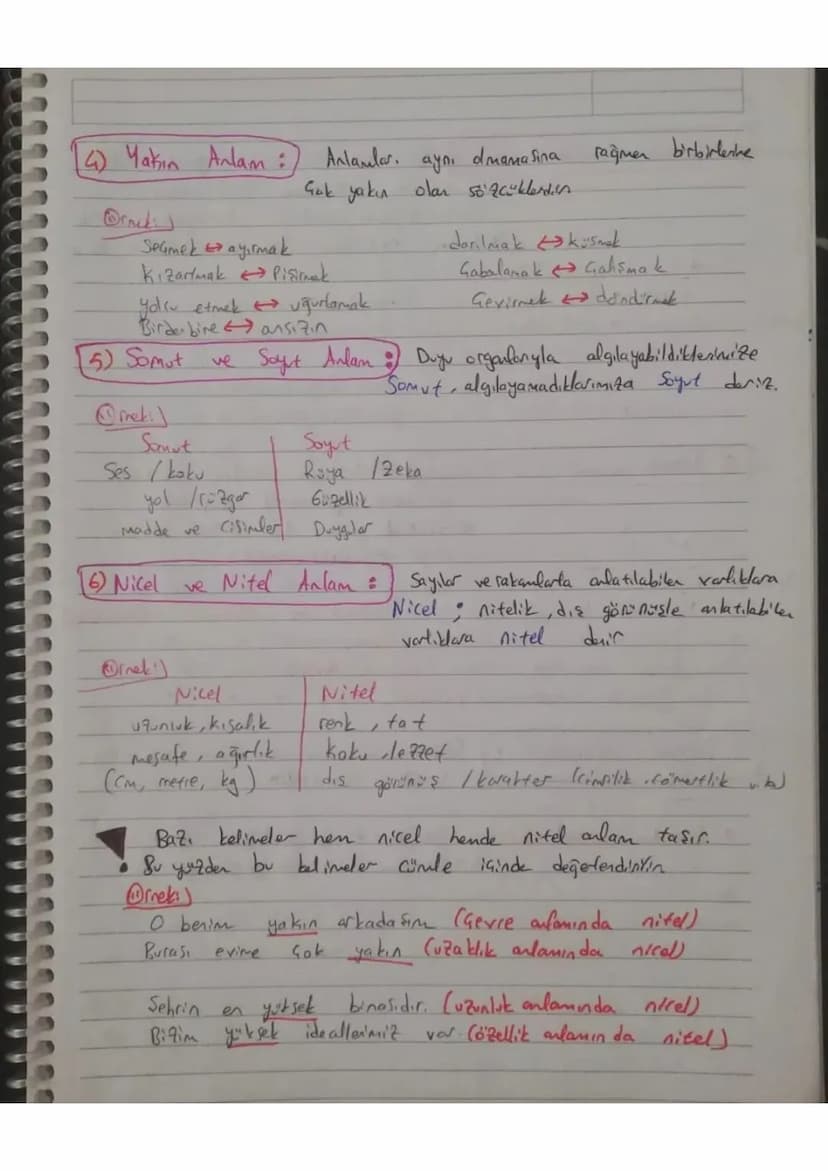 4) Yakın Anlam: Anlamları aynı olmamasına rağmen birbirlerine
çok yakın olan sözcüklerdir
Örnek:)
Seçmek ↔ ayırmak
darılmak ↔ küsmek
Kızartmak ↔ Pişirmek
Çabalamak ↔ Çalışmak
yolcu etmek ↔ uğurlamak
Çevirmek ↔ döndürmek
Birdenbire ↔ ansızın
5) Somut ve Soyut Anlam: Duyu organlarıyla algılayabildiklerimize
Somut, algılayamadıklarımıza Soyut deriz.
Örnek:)
Somut | Soyut
Ses / koku | Rüya / Zeka
yol / rüzgar | Güzellik
madde ve Cisimler | Duygular
6) Nicel ve Nitel Anlam: Sayılar ve rakamlarla anlatılabilen varlıklara
Nicel; nitelik, dış görünüşle anlatılabilen
varlıklara nitel denir
Örnek:)
Nicel | Nitel
uzunluk, kısalık | renk, tat
mesafe, ağırlık | koku, lezzet
(cm, metre, kg) | dış görünüş / karakter (cimrilik, cömertlik v.b)
Bazı kelimeler hem nicel hemde nitel anlam taşır.
Bu yüzden bu kelimeler cümle içinde değerlendirilir
Örnek:)
O benim yakın arkadaşım (Çevre anlamında nitel)
Burası evime çok yakın (uzaklık anlamında nicel)
Şehrin en yüksek binasıdır. (uzunluk anlamında nicel)
Bizim yüksek ideallerimiz var. (özellik anlamında nitel)